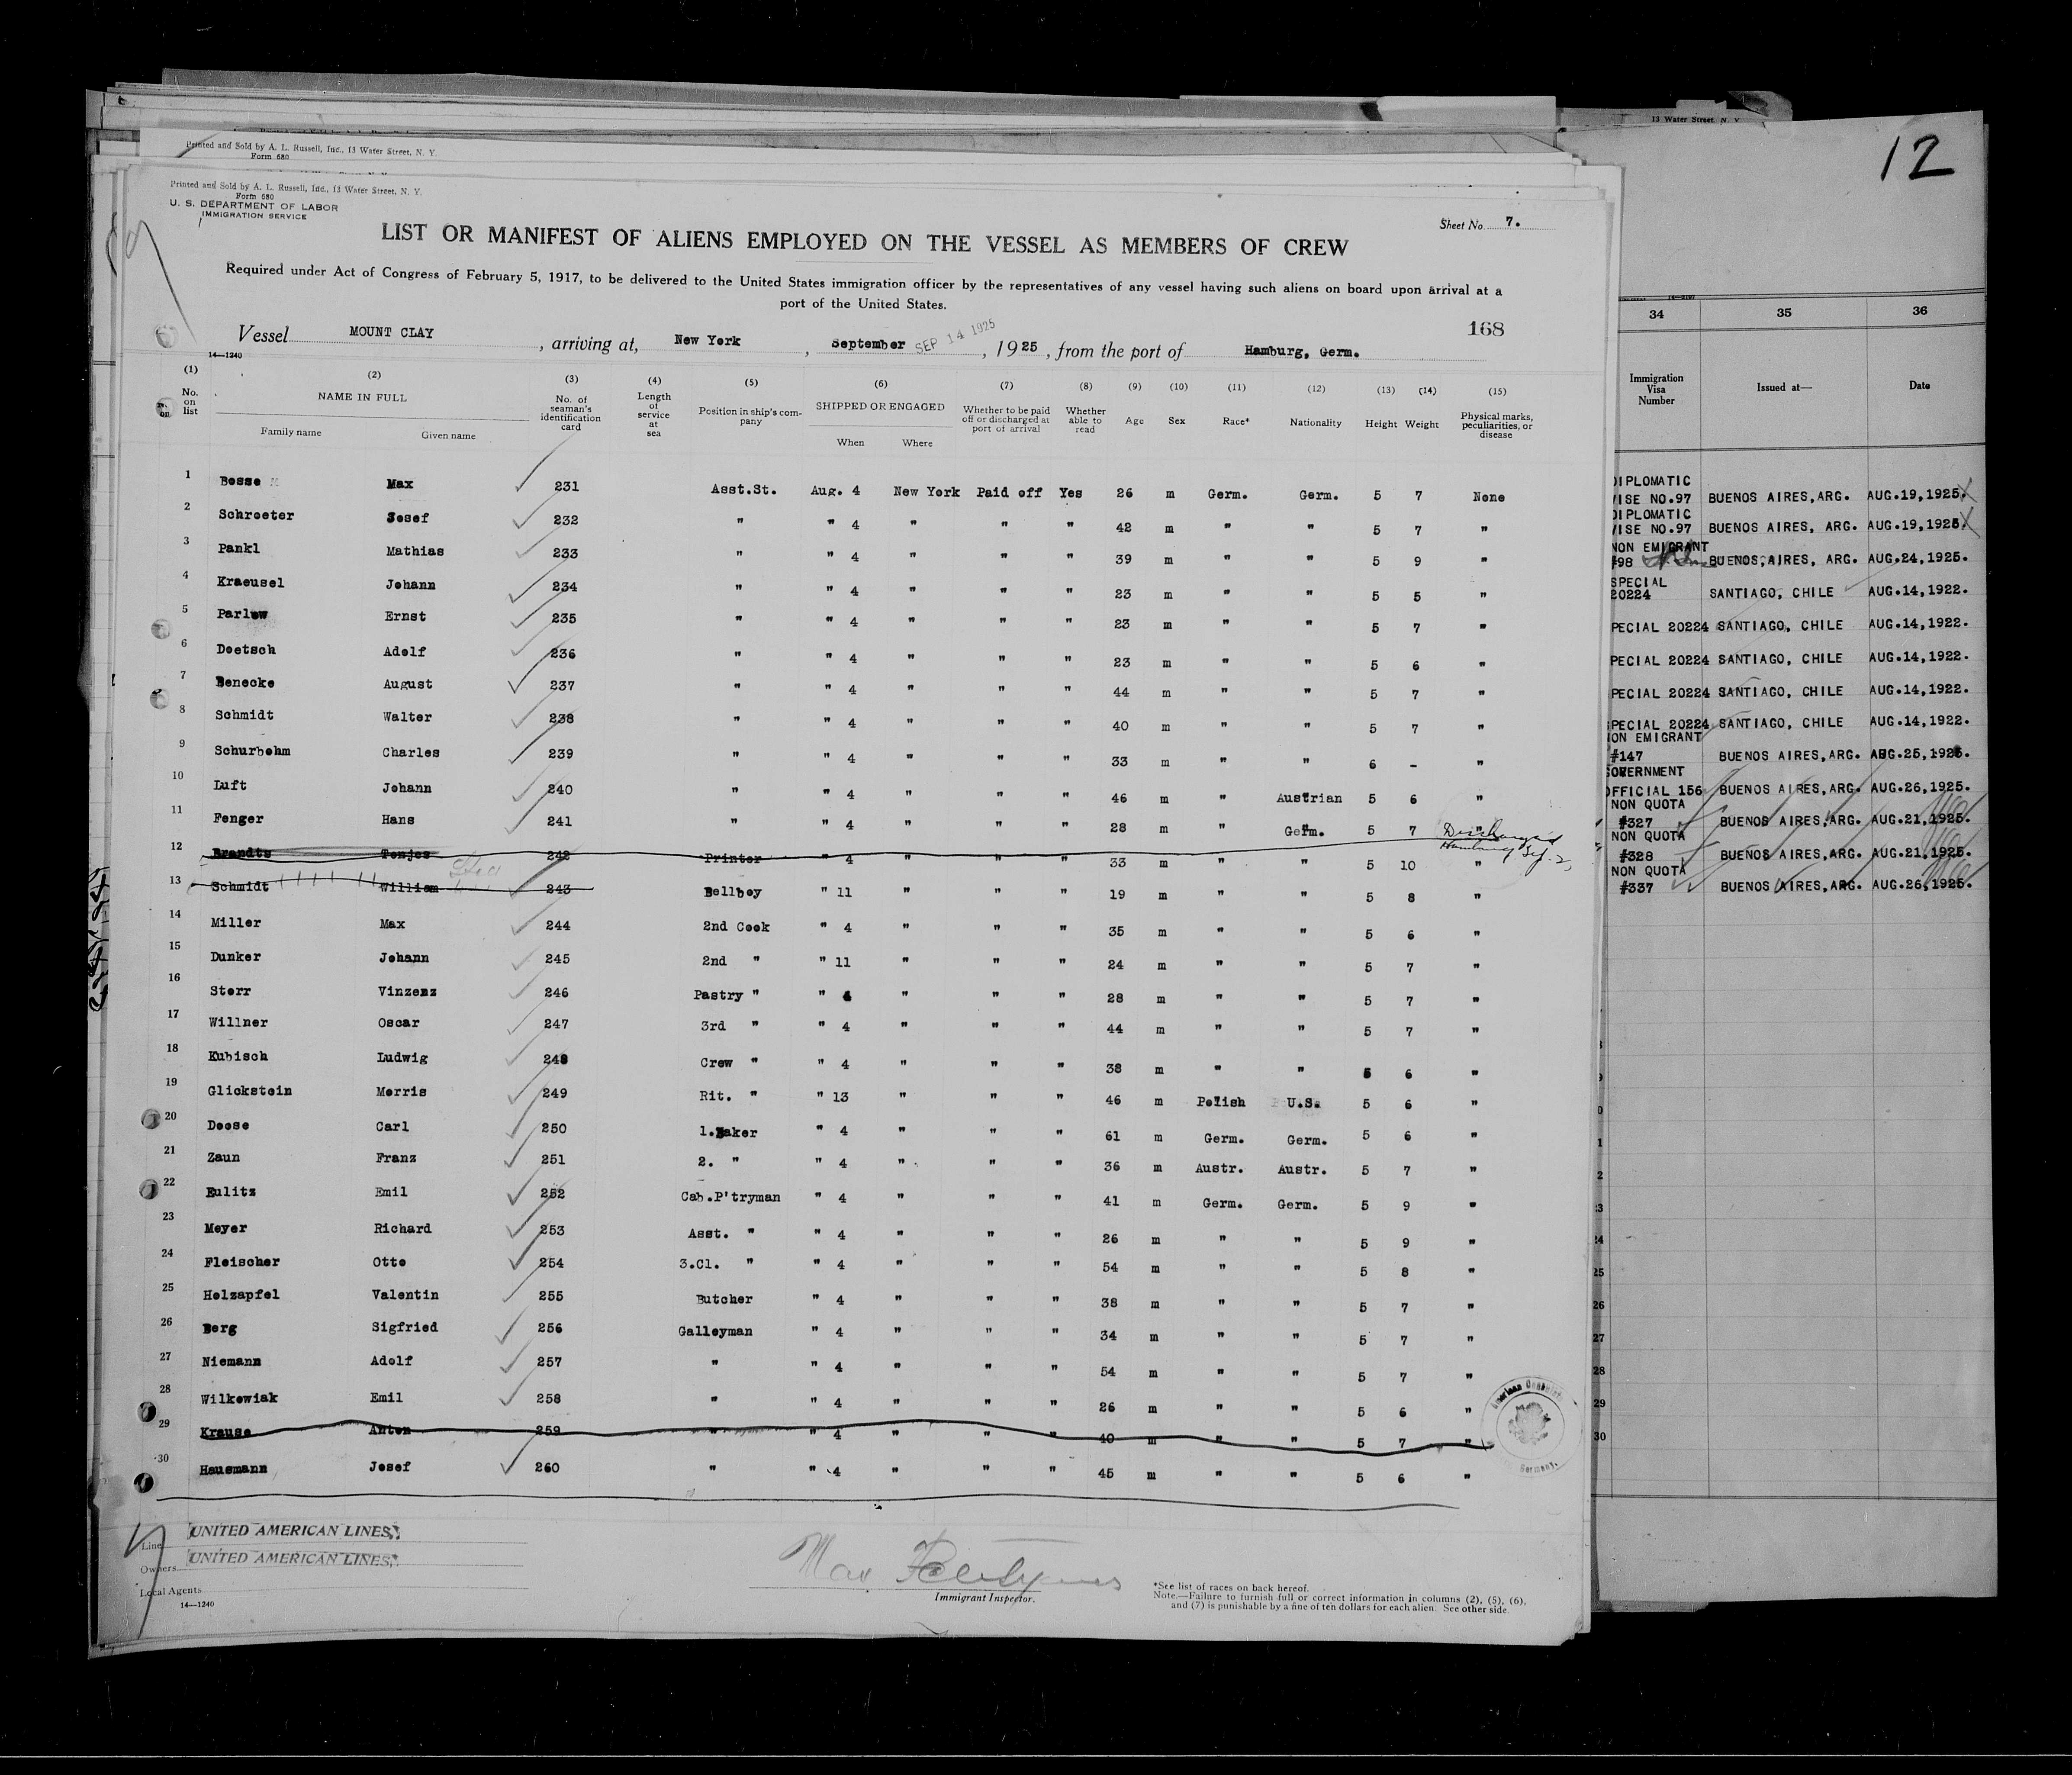 13 Water Street, N. Y.
12
Printed and Sold by A. L. Russell, Inc., 13 Water Street, N. Y.
Form 680
Printed and Sold by A. L. Russell, Inc., 13 Water Street, N. Y.
Form 680
U. S. DEPARTMENT OF LABOR
IMMIGRATION SERVICE
Sheet No. 7.
LIST OR MANIFEST OF ALIENS EMPLOYED ON THE VESSEL AS MEMBERS OF CREW
Required under Act of Congress of February 5, 1917, to be delivered to the United States immigration officer by the representatives of any vessel having such aliens on board upon arrival at a
port of the United States.
168
Vessel MOUNT CLAY, arriving at, New York, September SEP 14 1925, 1925, from the port of Hamburg, Germ.
14—1240
(1) (2) (3) (4) (5) (6) (7) (8) (9) (10) (11) (12) (13) (14) (15)
No. on list NAME IN FULL Family name Given name No. of seaman's identification card Length of service at sea Position in ship's company SHIPPED OR ENGAGED When Where Whether to be paid off or discharged at port of arrival Whether able to read Age Sex Race* Nationality Height Weight Physical marks, peculiarities, or disease
1 Bosse Max 231 Asst.St. Aug. 4 New York Paid off Yes 26 m Germ. Germ. 5 7 None
2 Schroeter Josef 232 " " 4 " " " 42 m " " 5 7 "
3 Pankl Mathias 233 " " 4 " " " 39 m " " 5 9 "
4 Kraeusel Johann 234 " " 4 " " " 23 m " " 5 5 "
5 Parlow Ernst 235 " " 4 " " " 23 m " " 5 7 "
6 Doetsch Adolf 236 " " 4 " " " 23 m " " 5 6 "
7 Benecke August 237 " " 4 " " " 44 m " " 5 7 "
8 Schmidt Walter 238 " " 4 " " " 40 m " " 5 7 "
9 Schurbohm Charles 239 " " 4 " " " 33 m " " 6 - "
10 Luft Johann 240 " " 4 " " " 46 m " Austrian 5 6 "
11 Fenger Hans 241 " " 4 " " " 28 m " Germ. 5 7 "
Discharged
Hamburg Sep. 2,
12 Brandts Tonjes 242 Printer " 4 " " " 33 m " " 5 10 "
13 Schmidt William 243 Bellboy " 11 " " " 19 m " " 5 8 "
14 Miller Max 244 2nd Cook " 4 " " " 35 m " " 5 6 "
15 Dunker Johann 245 2nd " " 11 " " " 24 m " " 5 7 "
16 Storr Vinzenz 246 Pastry " " 4 " " " 28 m " " 5 7 "
17 Willner Oscar 247 3rd " " 4 " " " 44 m " " 5 7 "
18 Kubisch Ludwig 248 Crew " " 4 " " " 38 m " " 5 6 "
19 Glickstein Morris 249 Rit. " " 13 " " " 46 m Polish U.S. 5 6 "
20 Doose Carl 250 1.Baker " 4 " " " 61 m Germ. Germ. 5 6 "
21 Zaun Franz 251 2. " " 4 " " " 36 m Austr. Austr. 5 7 "
22 Eulitz Emil 252 Cab.P'tryman " 4 " " " 41 m Germ. Germ. 5 9 "
23 Meyer Richard 253 Asst. " " 4 " " " 26 m " " 5 9 "
24 Fleischer Otto 254 3.Cl. " " 4 " " " 54 m " " 5 8 "
25 Holzapfel Valentin 255 Butcher " 4 " " " 38 m " " 5 7 "
26 Berg Sigfried 256 Galleyman " 4 " " " 34 m " " 5 7 "
27 Niemann Adolf 257 " " 4 " " " 54 m " " 5 7 "
28 Wilkowiak Emil 258 " " 4 " " " 26 m " " 5 6 "
29 Krause Anton 259 " " 4 " " " 40 m " " 5 7 "
30 Hausmann Josef 260 " " 4 " " " 45 m " " 5 6 "
American Consulate
Germany.
Line UNITED AMERICAN LINES,
Owners UNITED AMERICAN LINES,
Local Agents
14—1240
Max
Immigrant Inspector.
*See list of races on back hereof.
Note.—Failure to furnish full or correct information in columns (2), (5), (6),
and (7) is punishable by a fine of ten dollars for each alien. See other side.
34 35 36
Immigration Visa Number Issued at— Date
DIPLOMATIC
VISE NO.97 BUENOS AIRES,ARG. AUG.19,1925.
DIPLOMATIC
VISE NO.97 BUENOS AIRES, ARG. AUG.19,1925.
NON EMIGRANT
#98 BUENOS,AIRES, ARG. AUG.24,1925.
SPECIAL
20224 SANTIAGO, CHILE AUG.14,1922.
PECIAL 20224 SANTIAGO, CHILE AUG.14,1922.
PECIAL 20224 SANTIAGO, CHILE AUG.14,1922.
PECIAL 20224 SANTIAGO, CHILE AUG.14,1922.
PECIAL 20224 SANTIAGO, CHILE AUG.14,1922.
ON EMIGRANT
#147 BUENOS AIRES,ARG. AUG.25,1925.
GOVERNMENT
OFFICIAL 156 BUENOS AIRES,ARG. AUG.26,1925.
NON QUOTA
#327 BUENOS AIRES,ARG. AUG.21,1925.
NON QUOTA
#328 BUENOS AIRES,ARG. AUG.21,1925.
NON QUOTA
#337 BUENOS AIRES,ARG. AUG.26,1925.
25
26
27
28
29
30